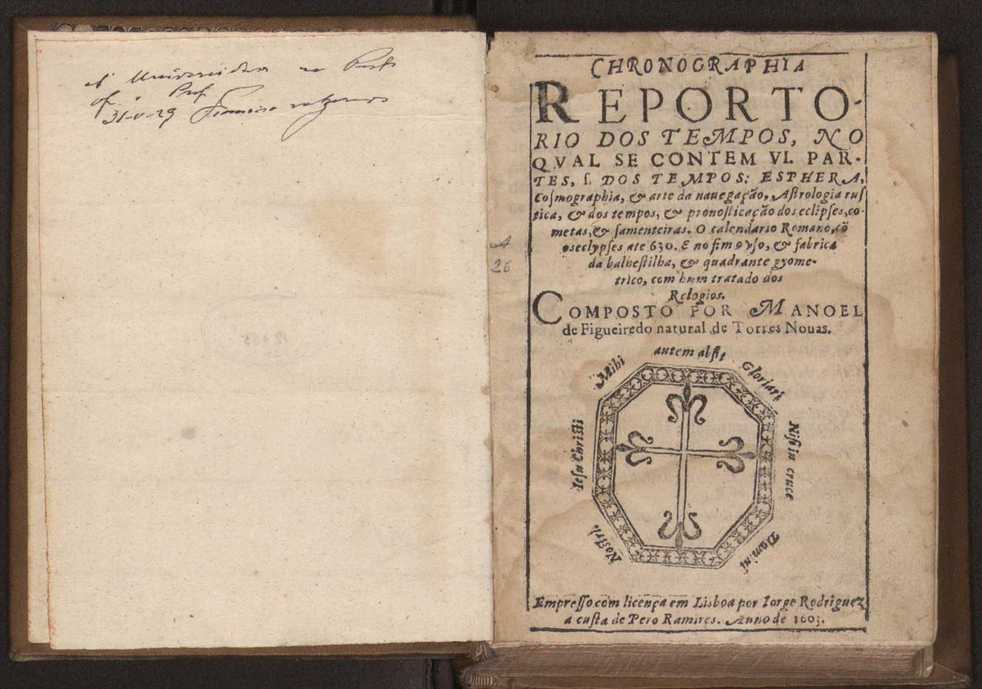 á Universidade do Porto
of. o Prof.
31-V-29 Francisco
A
26
CHRONOGRAPHIA
REPORTO-
RIO DOS TEMPOS, NO
QVAL SE CONTEM VI. PAR-
TES, ſ. DOS TEMPOS: ESPHERA,
Coſmographia, & arte da nauegação, Aſtrologia ruſ
tica, & dos tempos, & pronoſticação dos eclipſes, co-
metas, & ſamenteiras. O calendario Romano, cõ
os eclypſes ate 630. E no fim o vſo, & fabrica
da balheſtilha, & quadrante gyome-
trico, com hum tratado dos
Relogios.
COMPOSTO POR MANOEL
de Figueiredo natural de Torres Nouas.
Mihi autem abſit Gloriari
Niſi in cruce
Domini
Noſtri
Ieſu Chriſti
Empreſſo com licença em Lisboa por Iorge Rodriguez
a cuſta de Pero Ramires. Anno de 1603.